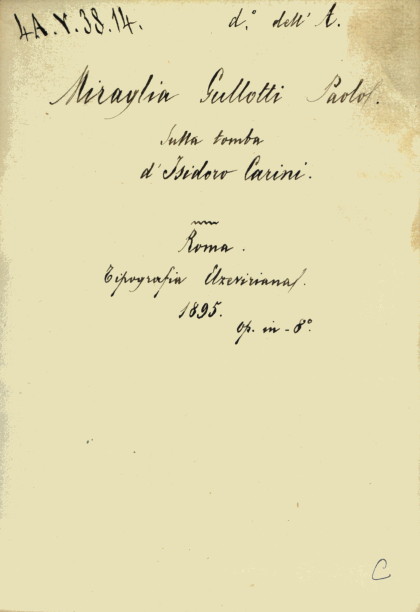 4A.V.38.14. d.° dell' A.
Miraglia Gullotti Paolo.
Sulla tomba
d'Isidoro Carini.
Roma.
Tipografia Elzeviriana.
1895.
op. in-8°.
C